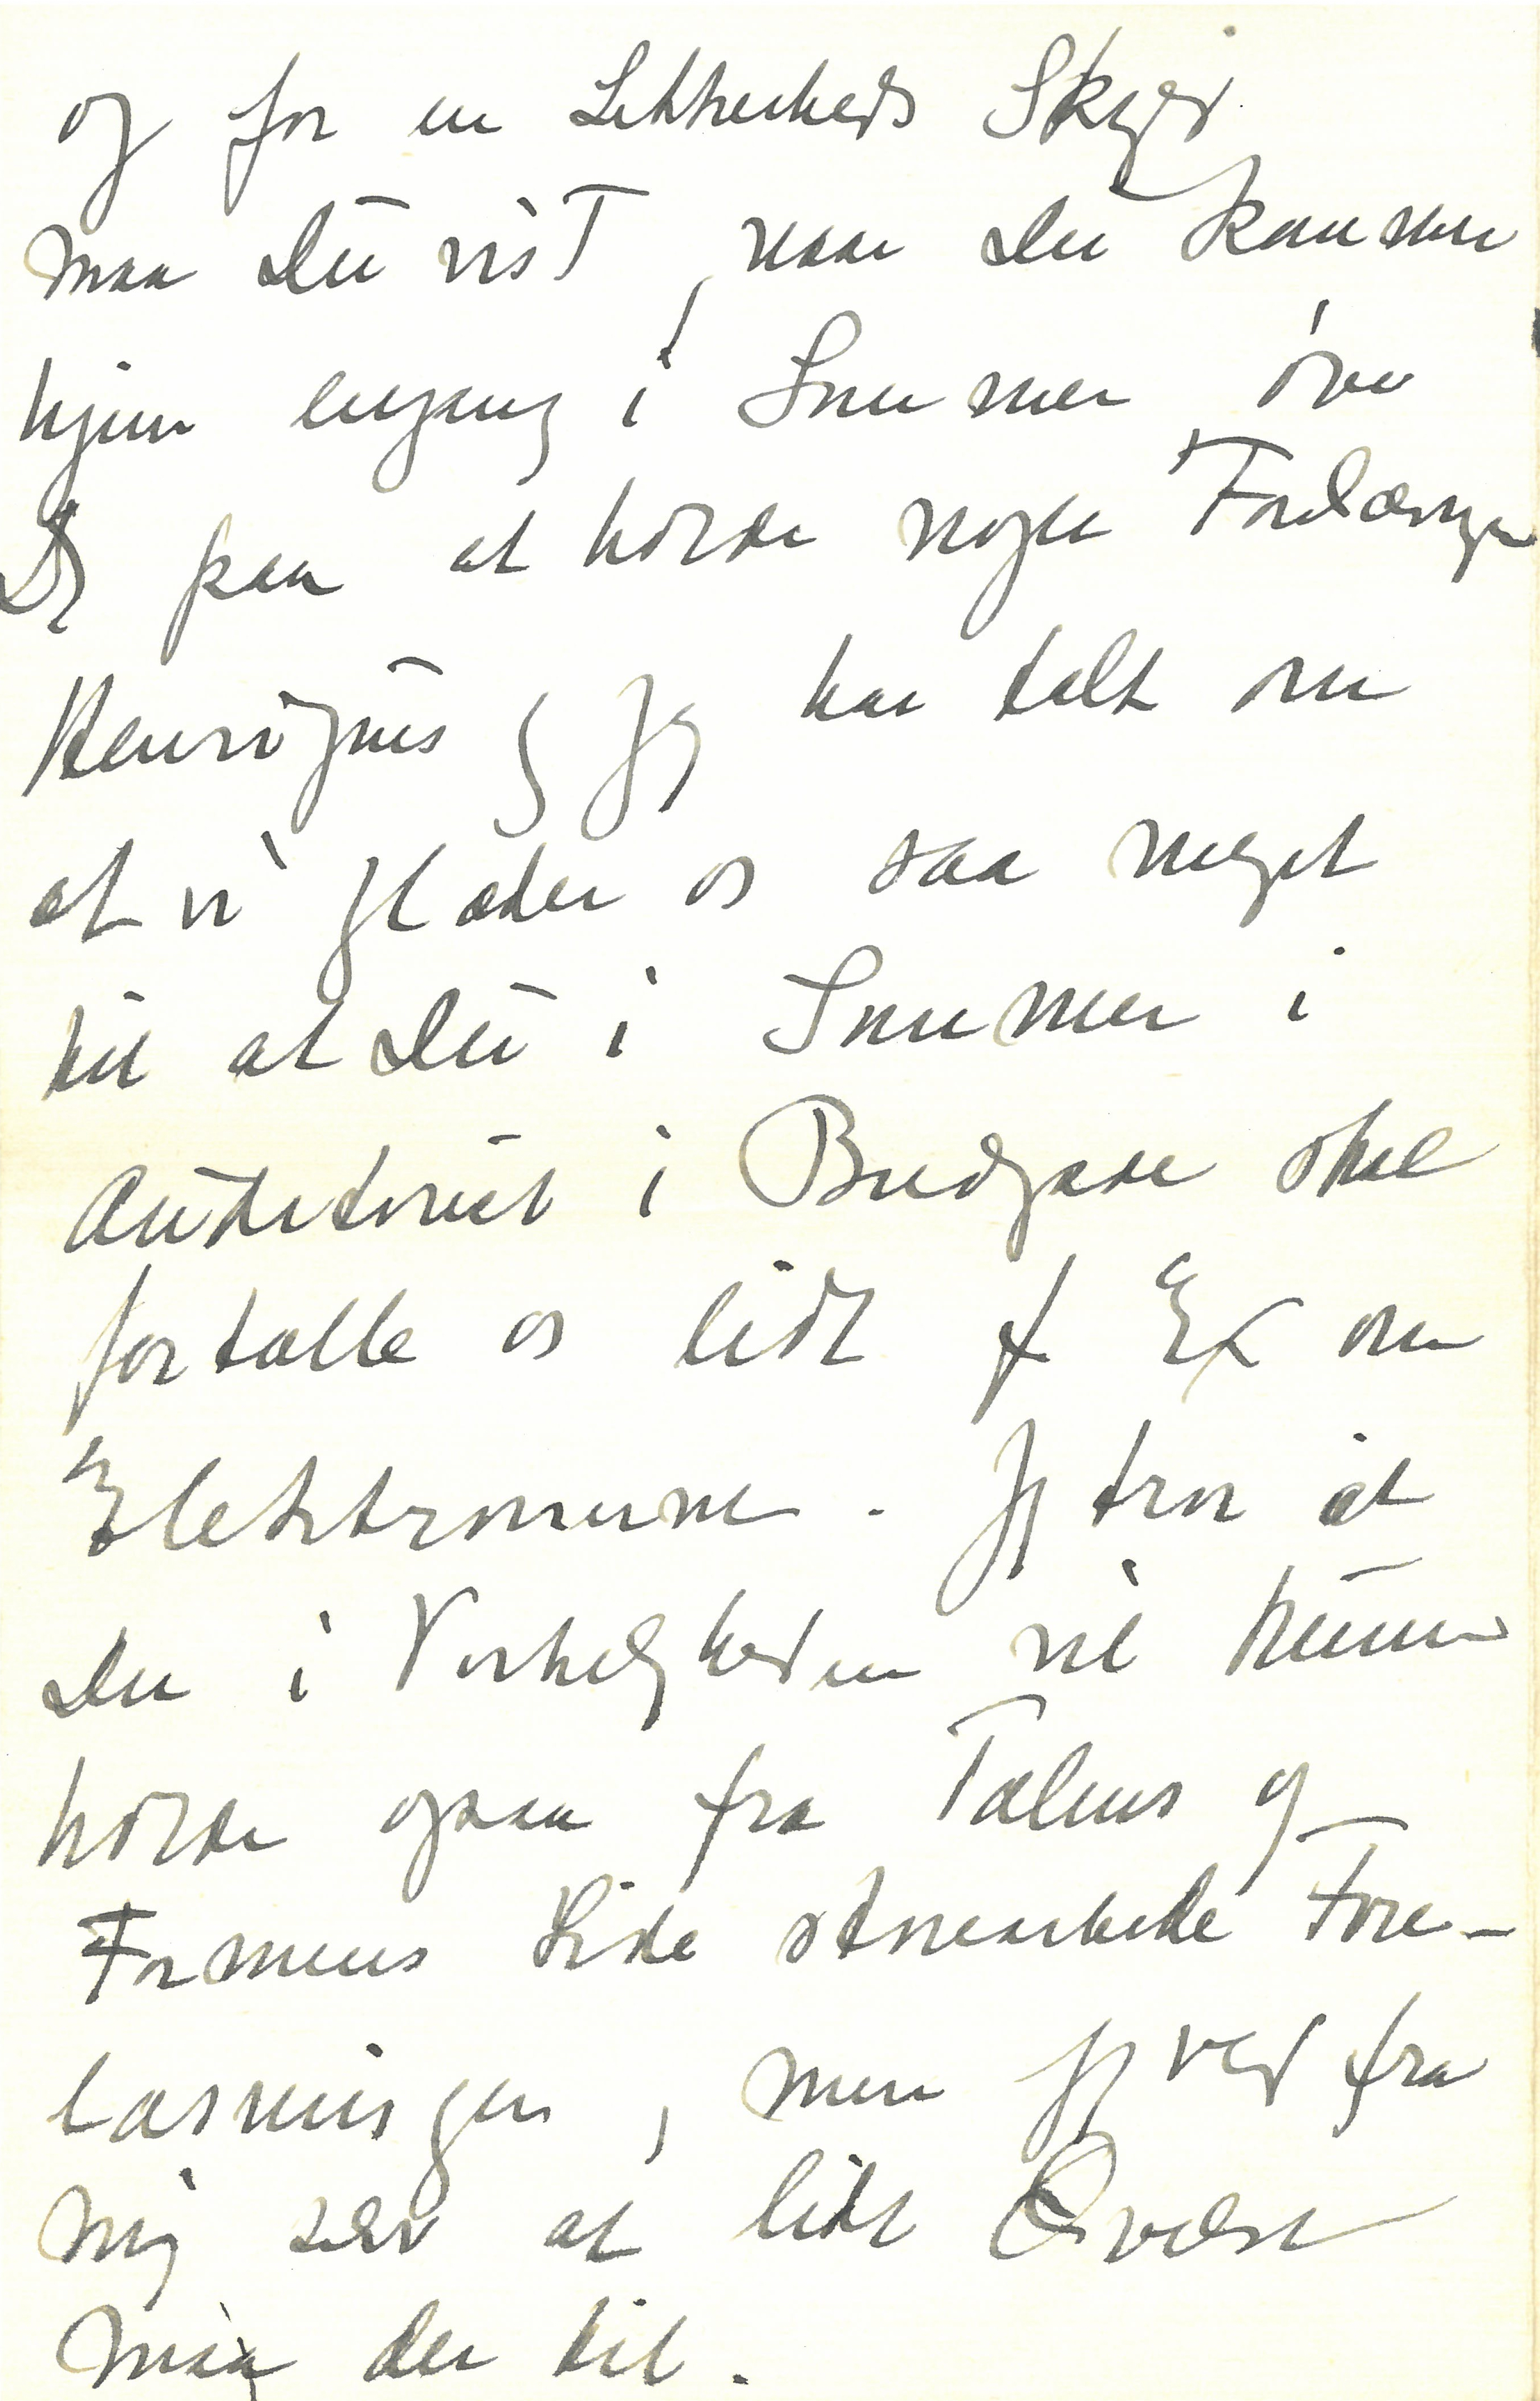 og for en Sikkerheds Skyld
maa Du vist, naar Du kommer
hjem engang i Sommer øve
Dig paa at holde nogle Forelæsninger
Henriques og Jeg har talt om
at vi glæder os saa meget
til at Du i Sommer i
Auditoriet i Bredgade skal
fortælle os lidt f Ex om
Elektronerne. Jeg tror at
Du i Virkeligheden vil kunne
holde ogsaa fra Talens og
Formens Side udmærkede Fore-
læsninger, men jeg ved fra
mig selv at lidt Øvelse
maa der til.